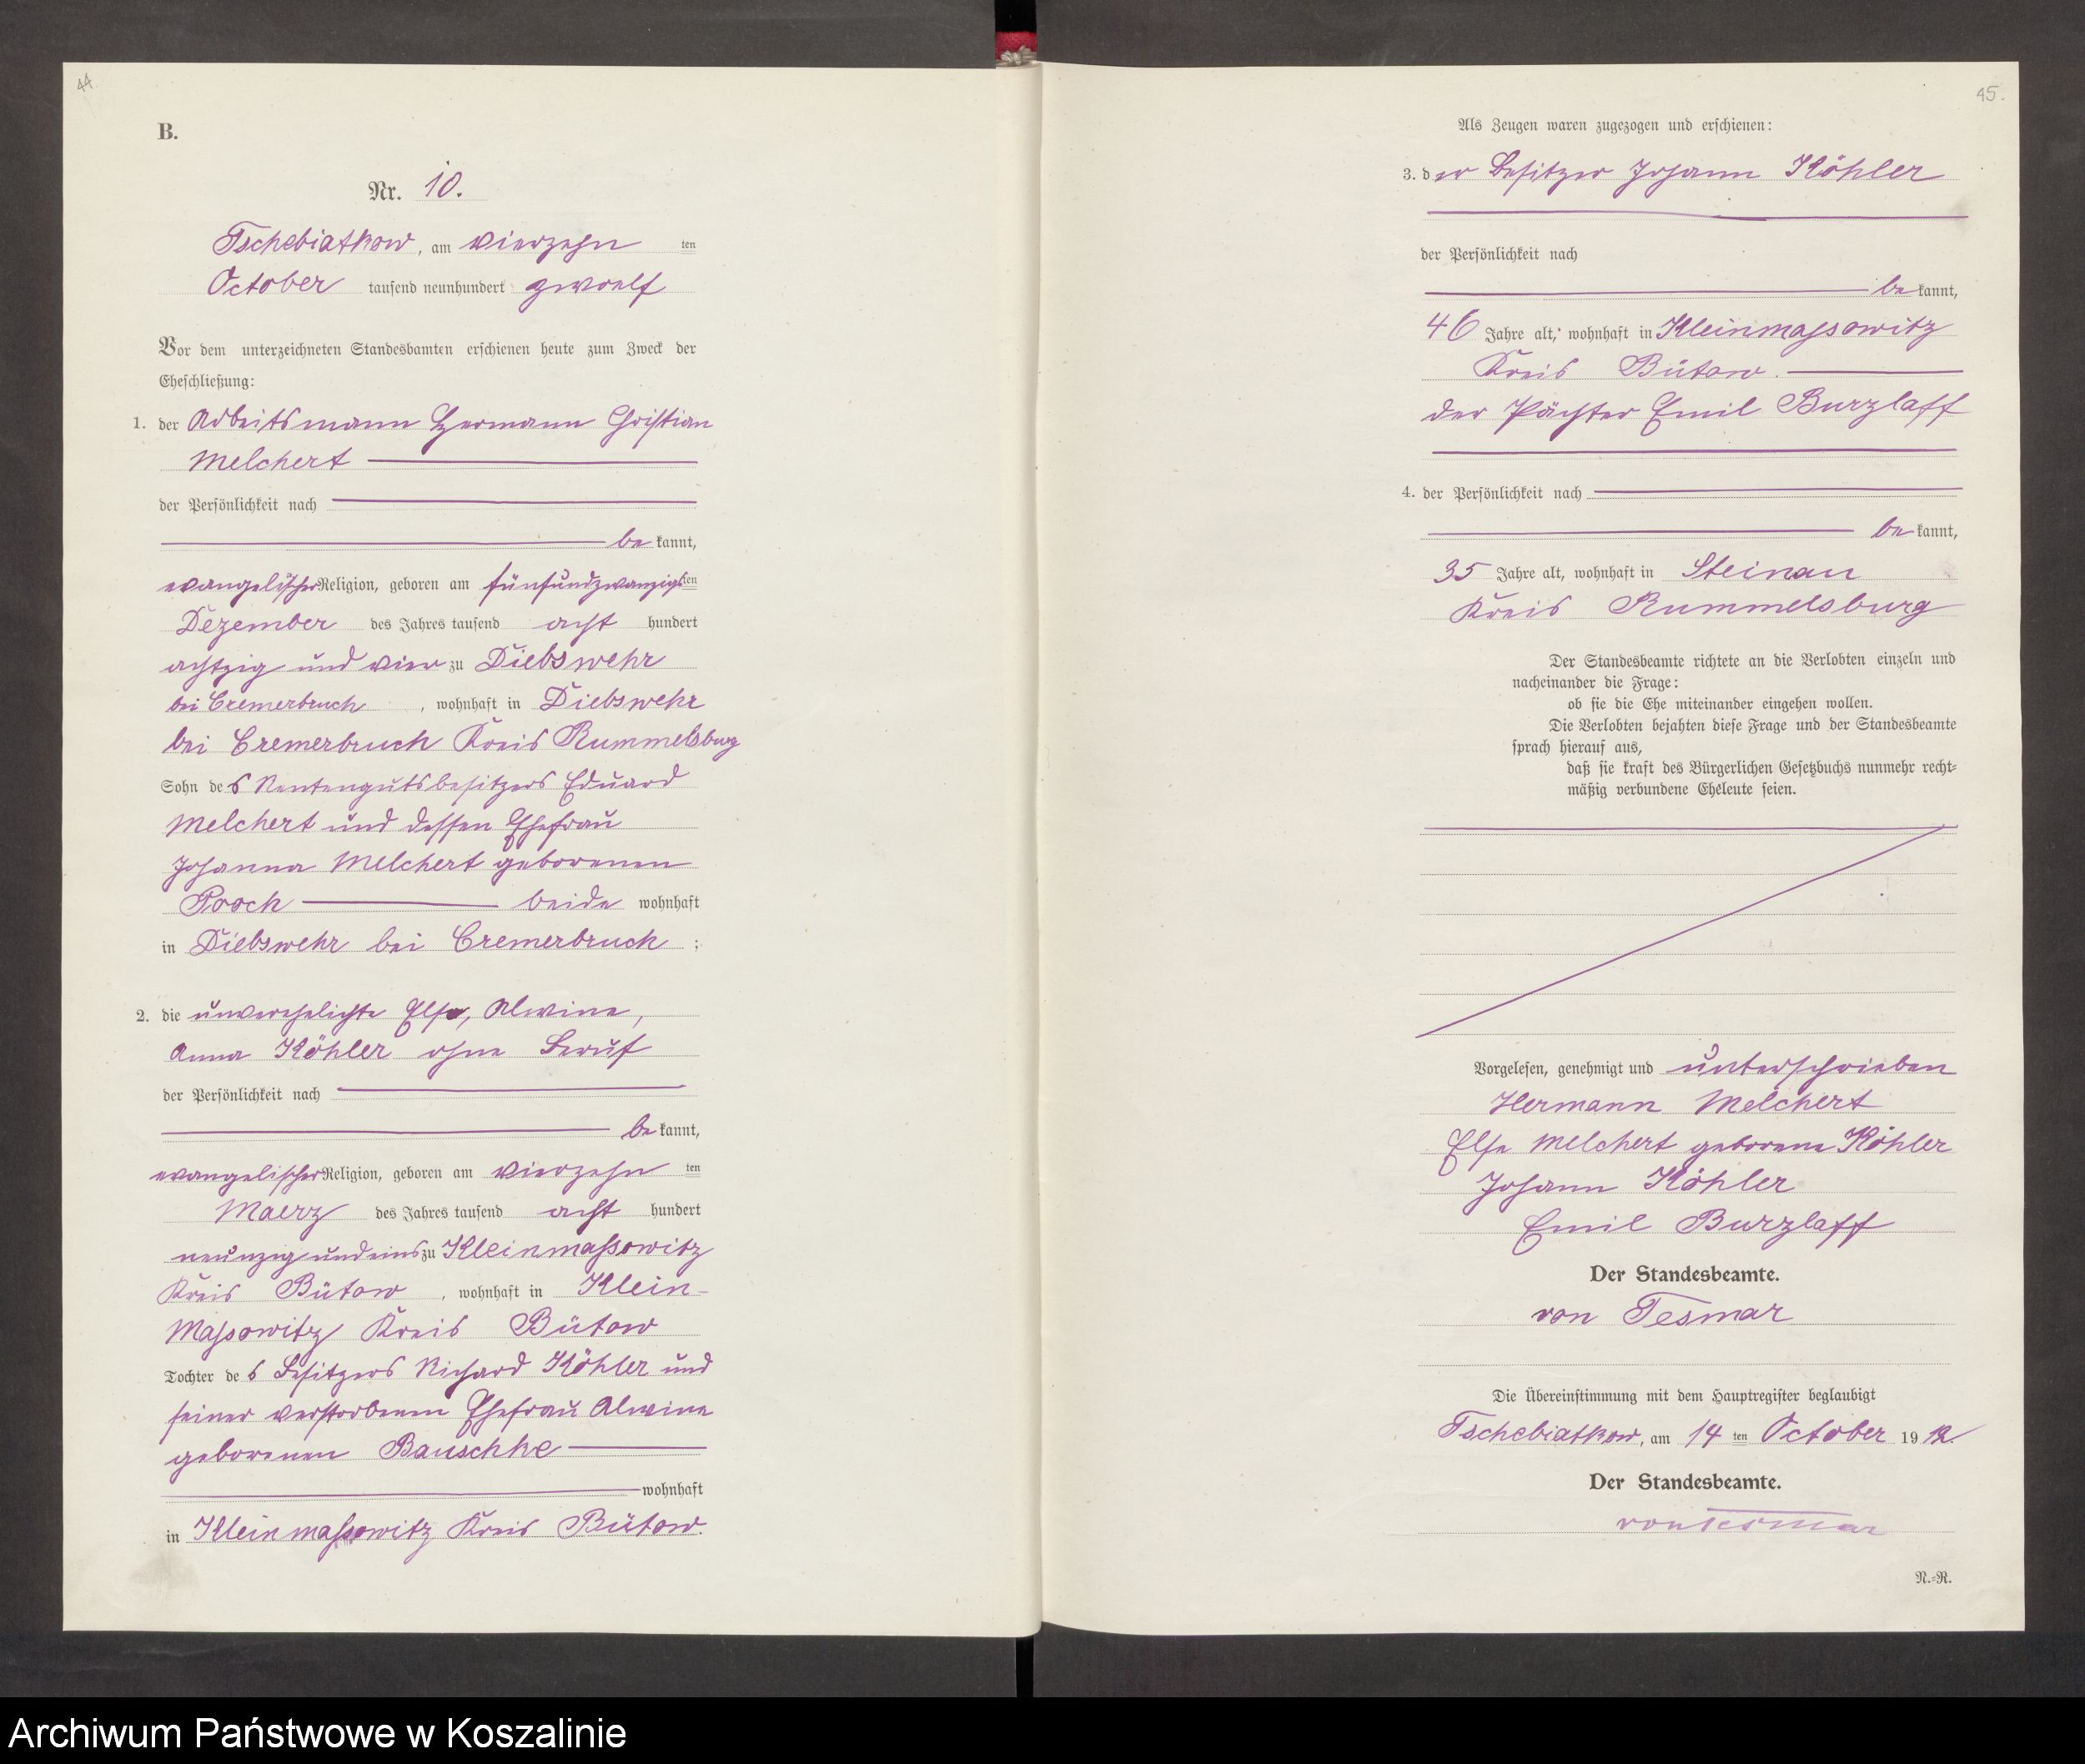 44
B.
Nr. 10.
Tschebiatkow, am vierzehn ten
October tausend neunhundert zwoelf
Vor dem unterzeichneten Standesbamten erschienen heute zum Zweck der
Eheschließung:
1. der Arbeitsmann Hermann Christian
Melchert
der Persönlichkeit nach
be kannt,
evangelischer Religion, geboren am fünfundzwanzigsten
Dezember des Jahres tausend acht hundert
achtzig und vier zu Diebswehr
bei Cremerbruch, wohnhaft in Diebswehr
bei Cremerbruch Kreis Rummelsburg
Sohn des Rentengutsbesitzers Eduard
Melchert und dessen Ehefrau
Johanna Melchert geborenen
Pooch beide wohnhaft
in Diebswehr bei Cremerbruch ;
2. die unverehelichte Else, Alwine,
Anna Köhler ohne Beruf
der Persönlichkeit nach
be kannt,
evangelischer Religion, geboren am vierzehn ten
Maerz des Jahres tausend acht hundert
neunzig und eins zu Kleinmassowitz
Kreis Bütow, wohnhaft in Klein-
Massowitz Kreis Bütow
Tochter des Besitzers Richard Köhler und
seiner verstorbenen Ehefrau Alwine
geborenen Bauschke
wohnhaft
in Kleinmassowitz Kreis Bütow.
45.
Als Zeugen waren zugezogen und erschienen:
3. der Besitzer Johann Köhler
der Persönlichkeit nach
be kannt,
46 Jahre alt, wohnhaft in Kleinmassowitz
Kreis Bütow.
der Pächter Emil Burzlaff
4. der Persönlichkeit nach
be kannt,
35 Jahre alt, wohnhaft in Steinau
Kreis Rummelsburg
Der Standesbeamte richtete an die Verlobten einzeln und
nacheinander die Frage:
ob sie die Ehe miteinander eingehen wollen.
Die Verlobten bejahten diese Frage und der Standesbeamte
sprach hierauf aus,
daß sie kraft des Bürgerlichen Gesetzbuchs nunmehr recht-
mäßig verbundene Eheleute seien.
Vorgelesen, genehmigt und unterschrieben
Hermann Melchert
Else Melchert geborene Köhler
Johann Köhler
Emil Burzlaff
Der Standesbeamte.
von Tesmar
Die Übereinstimmung mit dem Hauptregister beglaubigt
Tschebiatkow, am 14 ten October 1912.
Der Standesbeamte.
von Tesmar
N.-R.
Archiwum Państwowe w Koszalinie